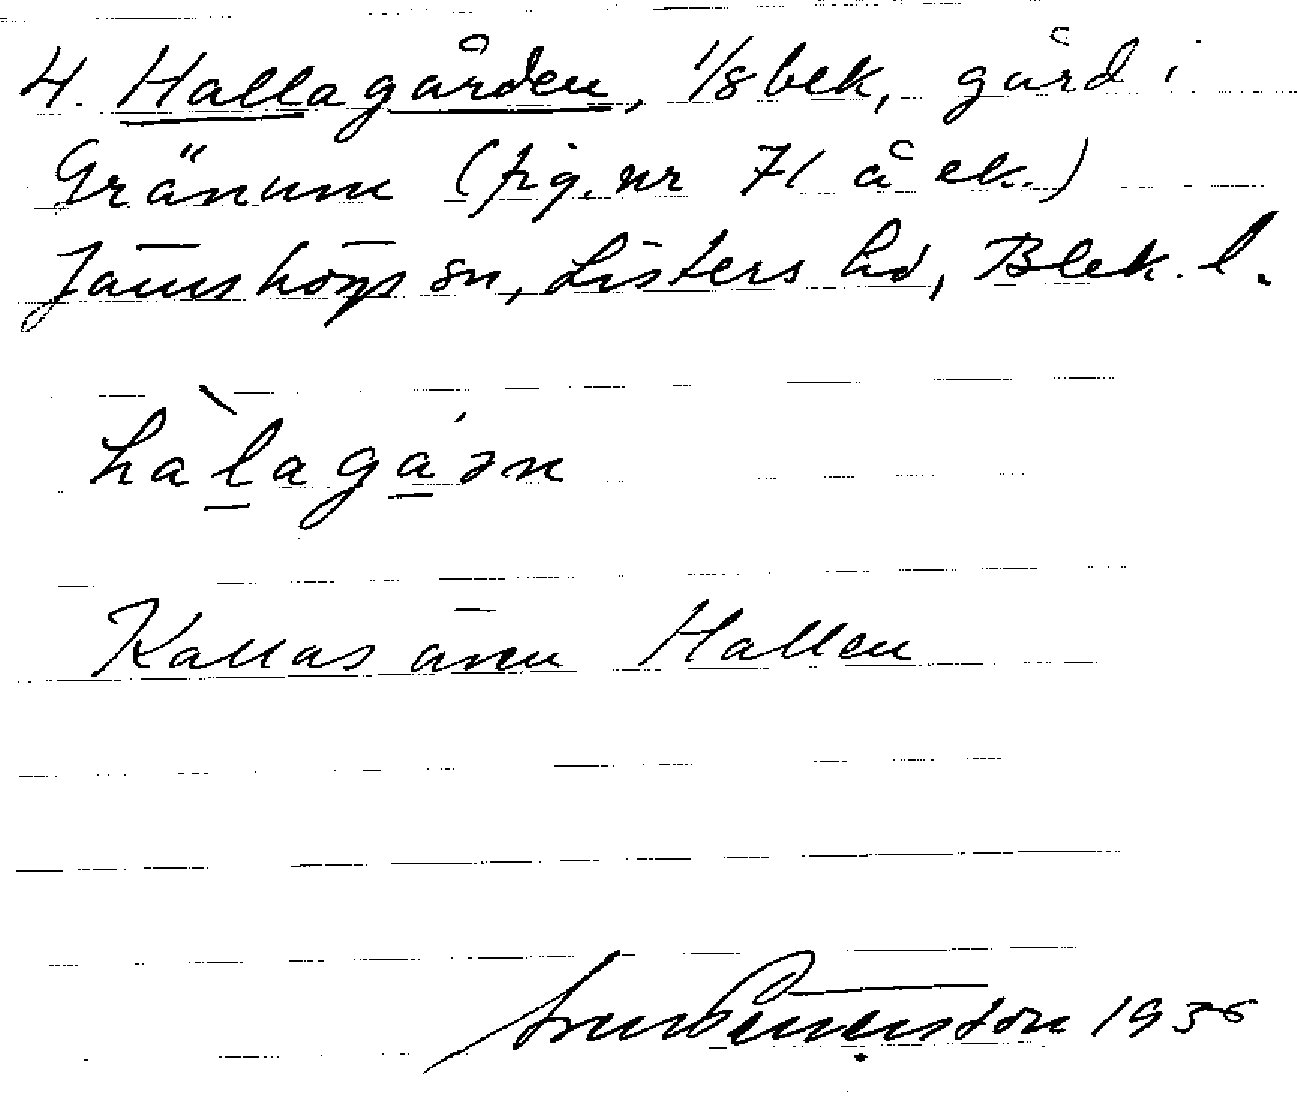 4. Hallagården, 1/8 bek, gård i
Gränum (fig. nr 71 å ek.)
Jämshögs sn, Listers hd, Blek. l.
hàlagárn
Kallas även Hallen
1936